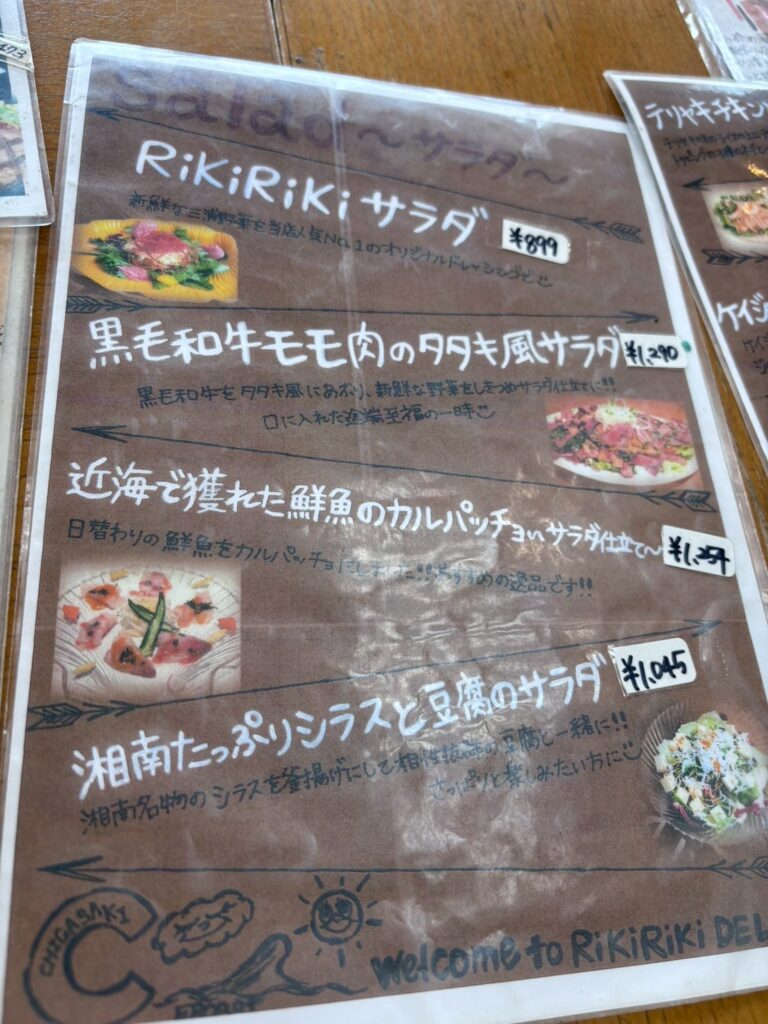 Salad～サラダ～
RiKiRiKiサラダ
¥899
新鮮な三浦野菜を当店人気No.1のオリジナルドレッシングで
黒毛和牛モモ肉のタタキ風サラダ
¥1,290
黒毛和牛をタタキ風にあぶり、新鮮な野菜をしきつめサラダ仕立てに!!
口に入れた途端至福の一時
近海で獲れた鮮魚のカルパッチョ～サラダ仕立て～
¥1,254
日替わりの鮮魚をカルパッチョにしました!!おすすめの逸品です!!
湘南たっぷりシラスと豆腐のサラダ
¥1,045
湘南名物のシラスを釜揚げにして相性抜群の豆腐と一緒に!!
さっぱりと楽しみたい方に
CHIGASAKI
welcome to RiKiRiKi DEL
テリヤキチキン
ケイジ